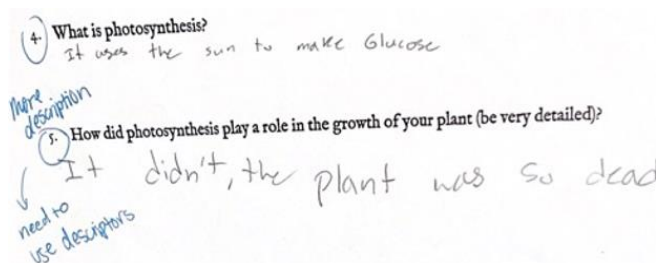 4. What is photosynthesis?
It uses the sun to make Glucose
More
description
5. How did photosynthesis play a role in the growth of your plant (be very detailed)?
It didn't, the plant was so dead
need to
use descriptors